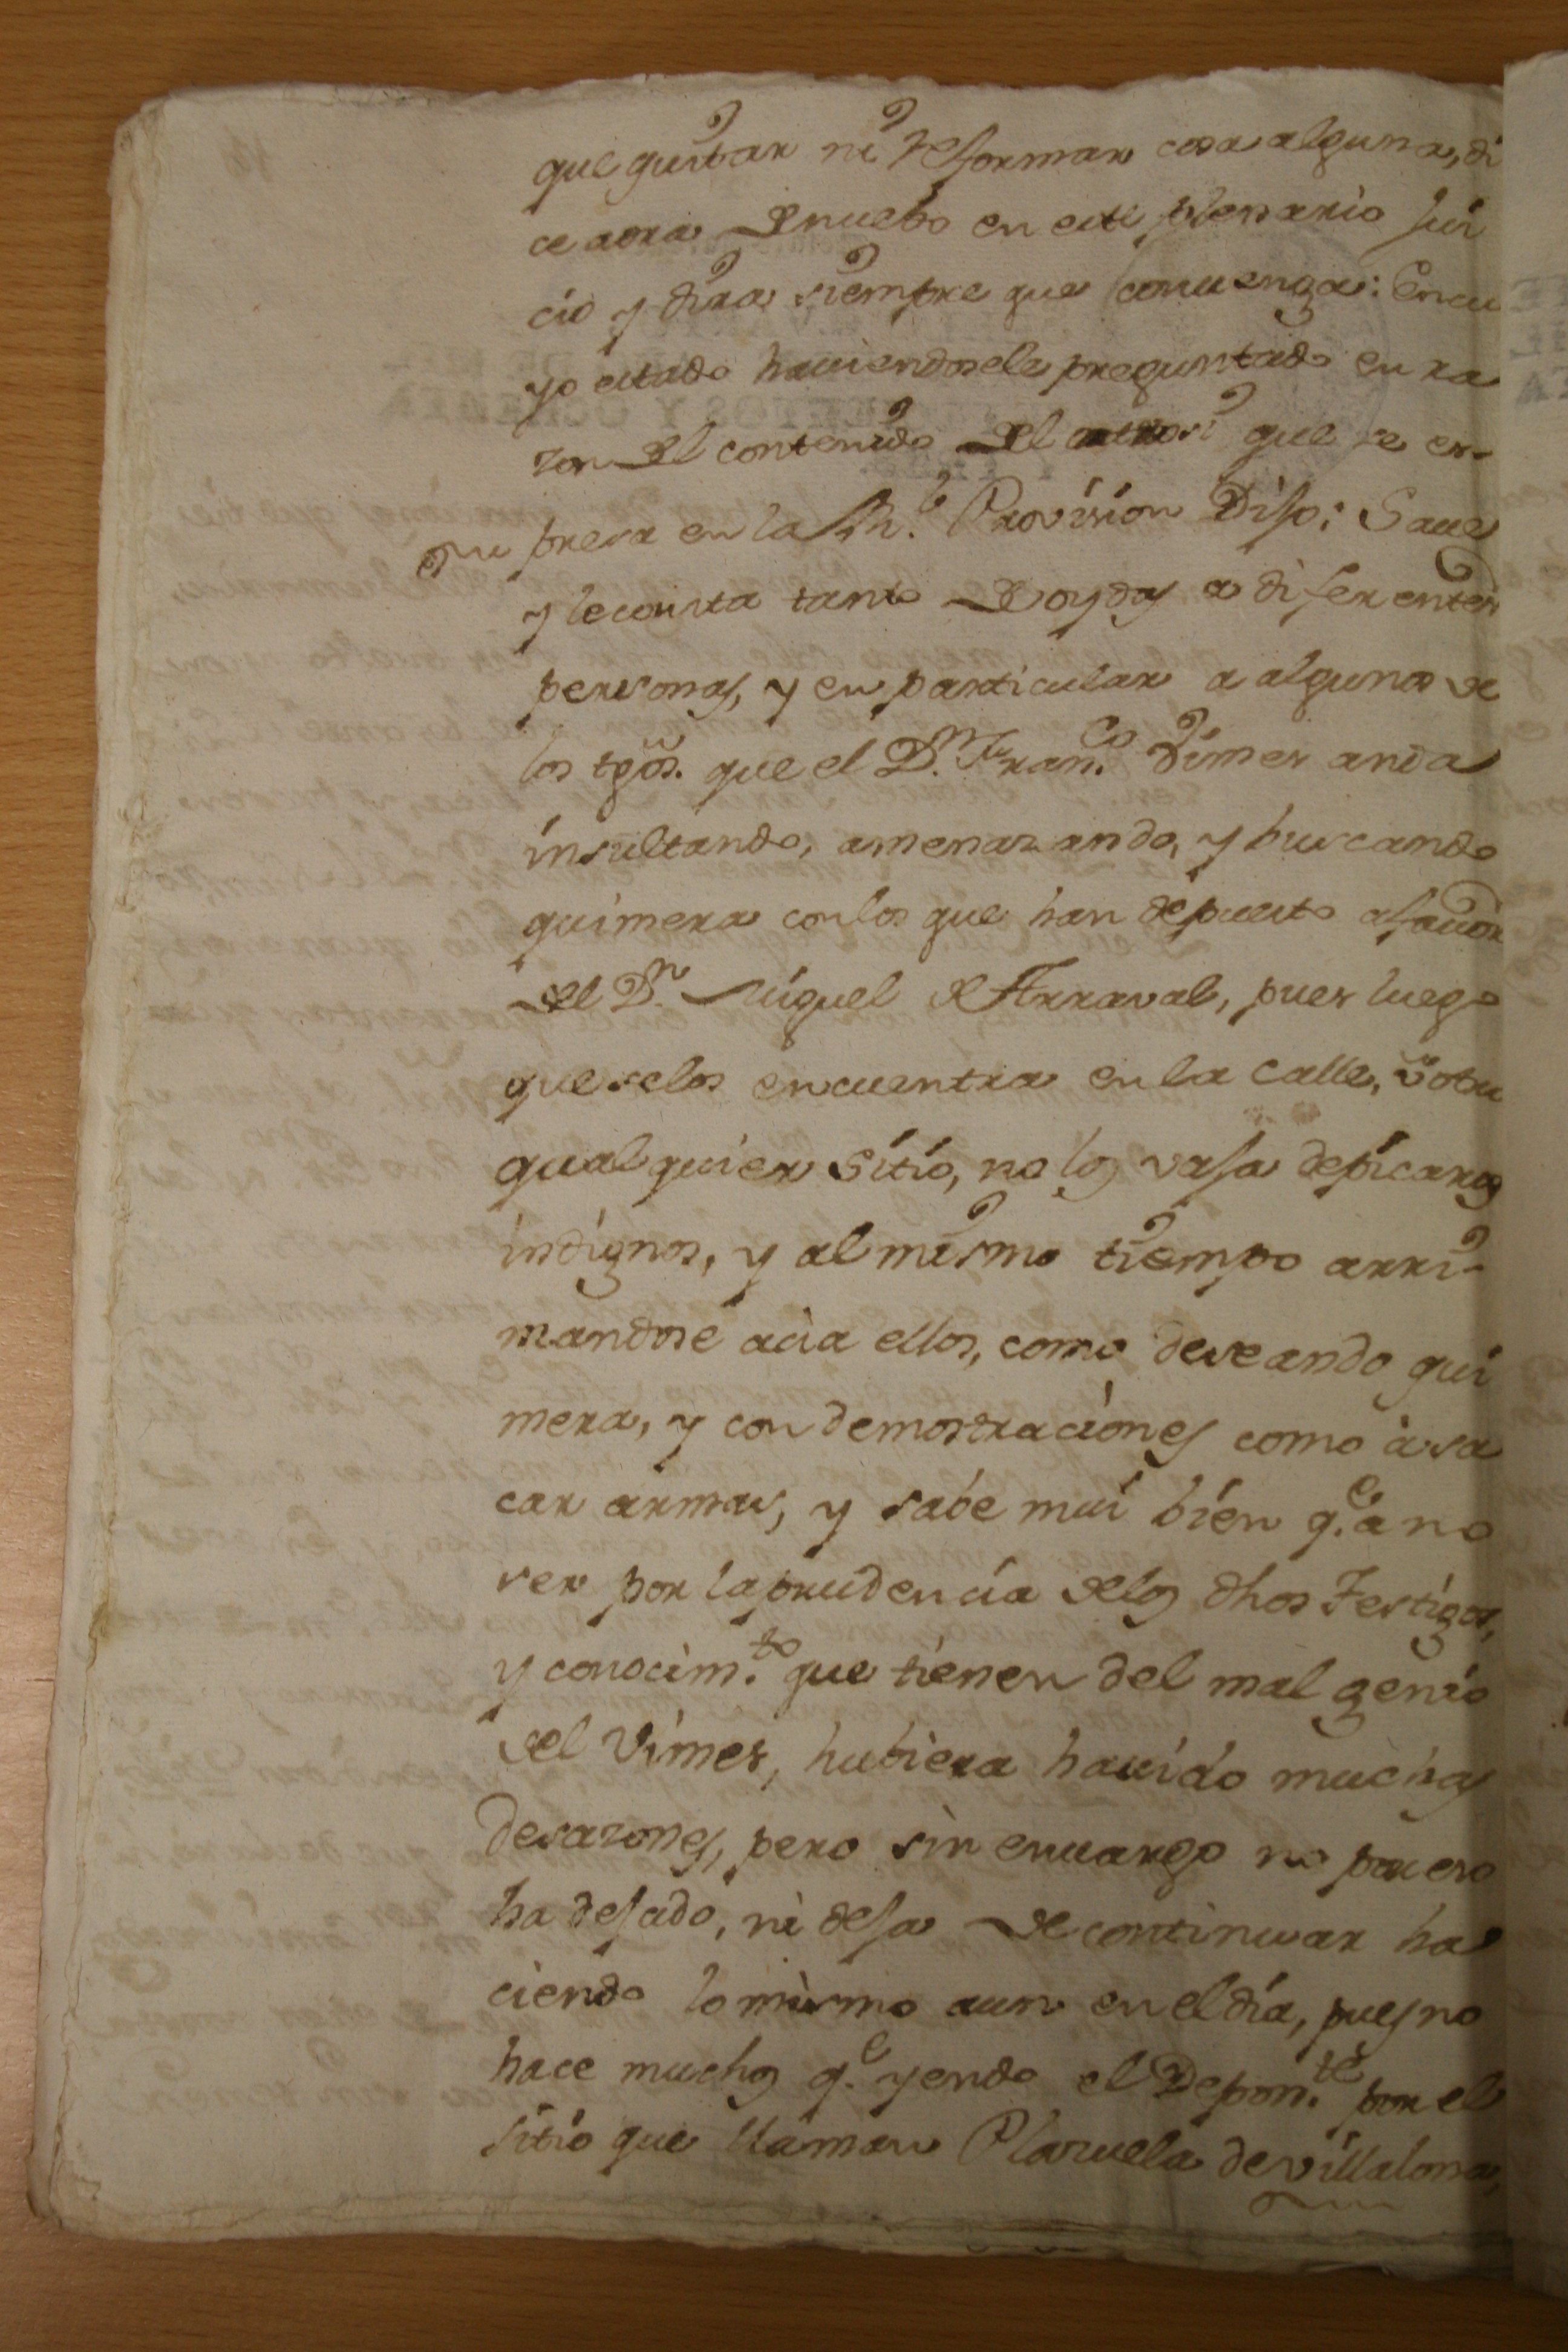 que quitar ni reformar cosa alguna, di
ce aora de nuebo en este plenario jui
cio y dira siempre que convenga: En cu
yo estado haviendosele preguntado en ra
zon del contenido del otrosi que se es-
presa en la Rl. Provision Dijo: Save
y le consta tanto de oydas a diferentes
personas, y en particular a algunos de
los tgõs. que el Dn. Franco. Vimes anda
insultando, amenazando, y buscando
quimera con los que han depuesto a favor
del Dn. Miguel de Arraval, pues luego
que se los encuentra en la calle, ú otro
qualquier sitio, no los vaja de picaros
indignos, y al mismo tiempo arri-
mandose acia ellos, como deseando qui
mera, y con demostraciones como à sa
car armas, y sabe mui bien qe. a no
ser por la prudencia de los dhos Testigos,
y conocimto. que tienen del mal genio
del Vimes, hubiera havido muchas
desazones, pero sin envargo no por eso
ha dejado, ni deja de continuar ha
ciendo lo mismo aun en el día, pues no
hace muchos qe. yendo el Deponte. por el
sitio que llaman Plazuela de Villalona,